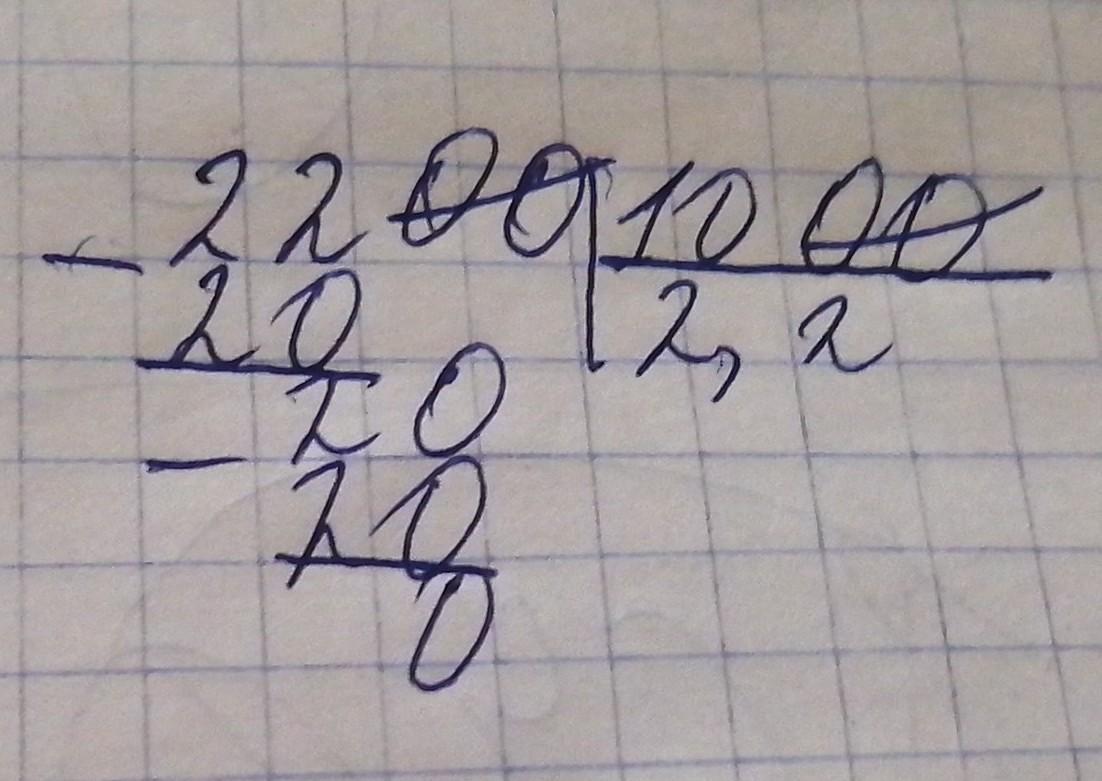 2200 | 1000
- 20 | 2,2
20
- 20
0